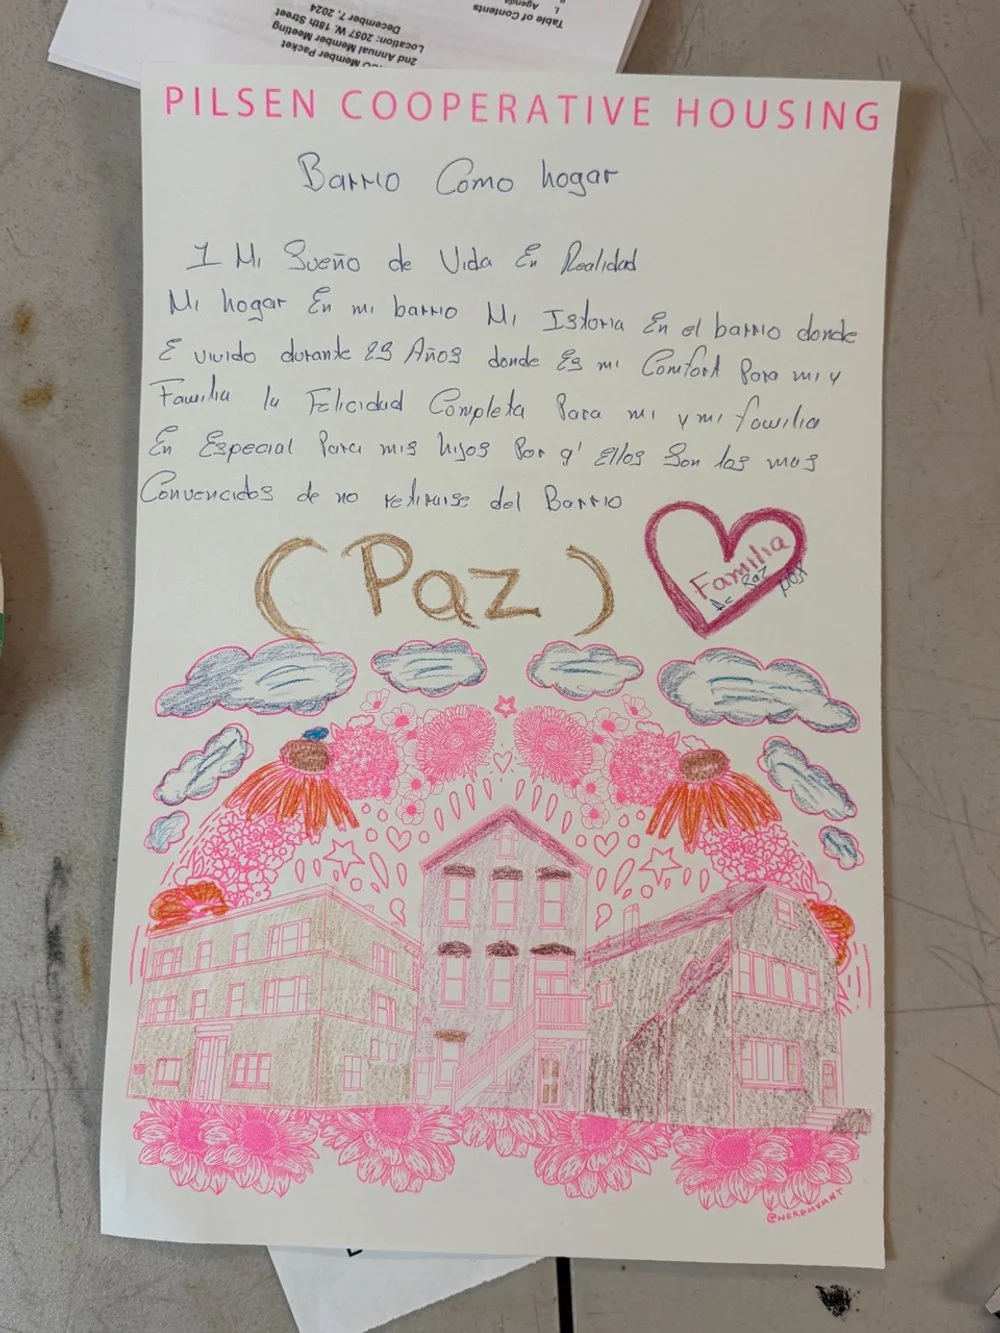 2nd Annual Member Meeting
Member Packet
Location: 2057 W. 18th Street
December 7, 2024
Table of Contents
Agenda
PILSEN COOPERATIVE HOUSING
Barrio Como hogar
1 Mi Sueño de Vida En Realidad
Mi hogar En mi barrio Mi Istoria En el barrio donde
E vivido durante 23 Años donde Es mi Comfort Para mi y
Familia la Felicidad Completa Para mi y mi familia
En Especial Para mis hijos Por q' Ellos Son los mas
Convencidos de no retirarse del Barrio
(Paz)
Familia
De Paz
@NERDMVMNT